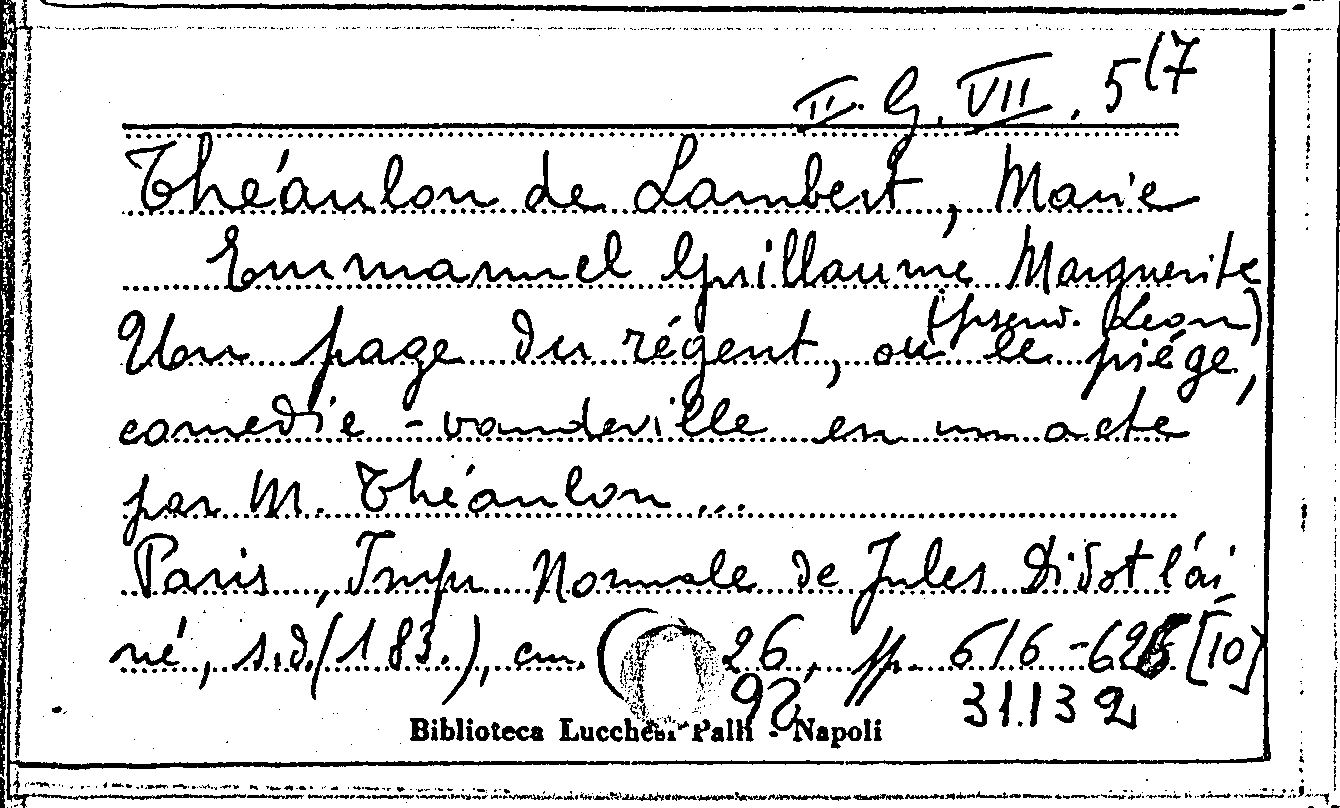 II. G. VII. 5(7
Théaulon de Lambert, Marie
Emmanuel Guillaume Marguerite
(pseud. Leon)
Un page du régent, ou le piége,
comedie-vaudeville en un acte
par M. Théaulon...
Paris, Imp. Normale de Jules Didot l'ái-
né, s.d. (183.), cm. ( 26, pp. 616-625 [10]
92 31.132
Biblioteca Lucchesi Palli - Napoli